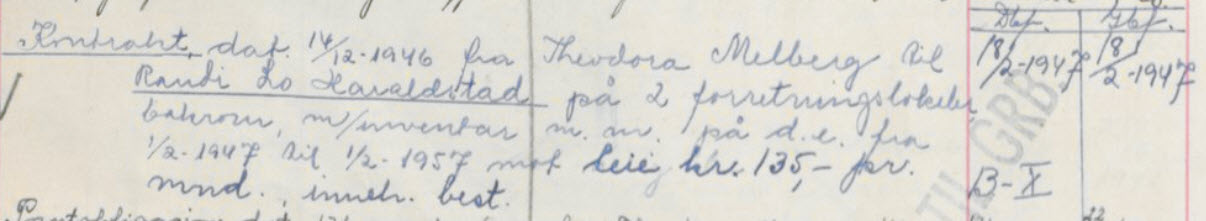 Dbf. Gbf.
Kontrakt, dat. 14/12-1946 fra Theodora Melberg til 18/2-1947 18/2-1947
Randi Lo Haraldstad på 2 forretningslokaler
bakrom, m/inventar m.m. på d.e. fra
1/2-1947 til 1/2-1957 mot leie kr. 135,- pr.
mnd., inneh. best. B-X
TIL GRB.